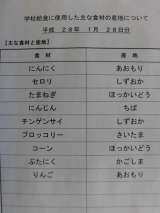 学校給食に使用した主な食材の産地について
平成 28年 1月 28日分
【主な食材と産地】
食材 産地
にんにく あおもり
セロリ しずおか
たまねぎ ほっかいどう
にんじん ちば
チンゲンサイ しずおか
ブロッコリー さいたま
コーン ほっかいどう
ぶたにく かごしま
りんご あおもり